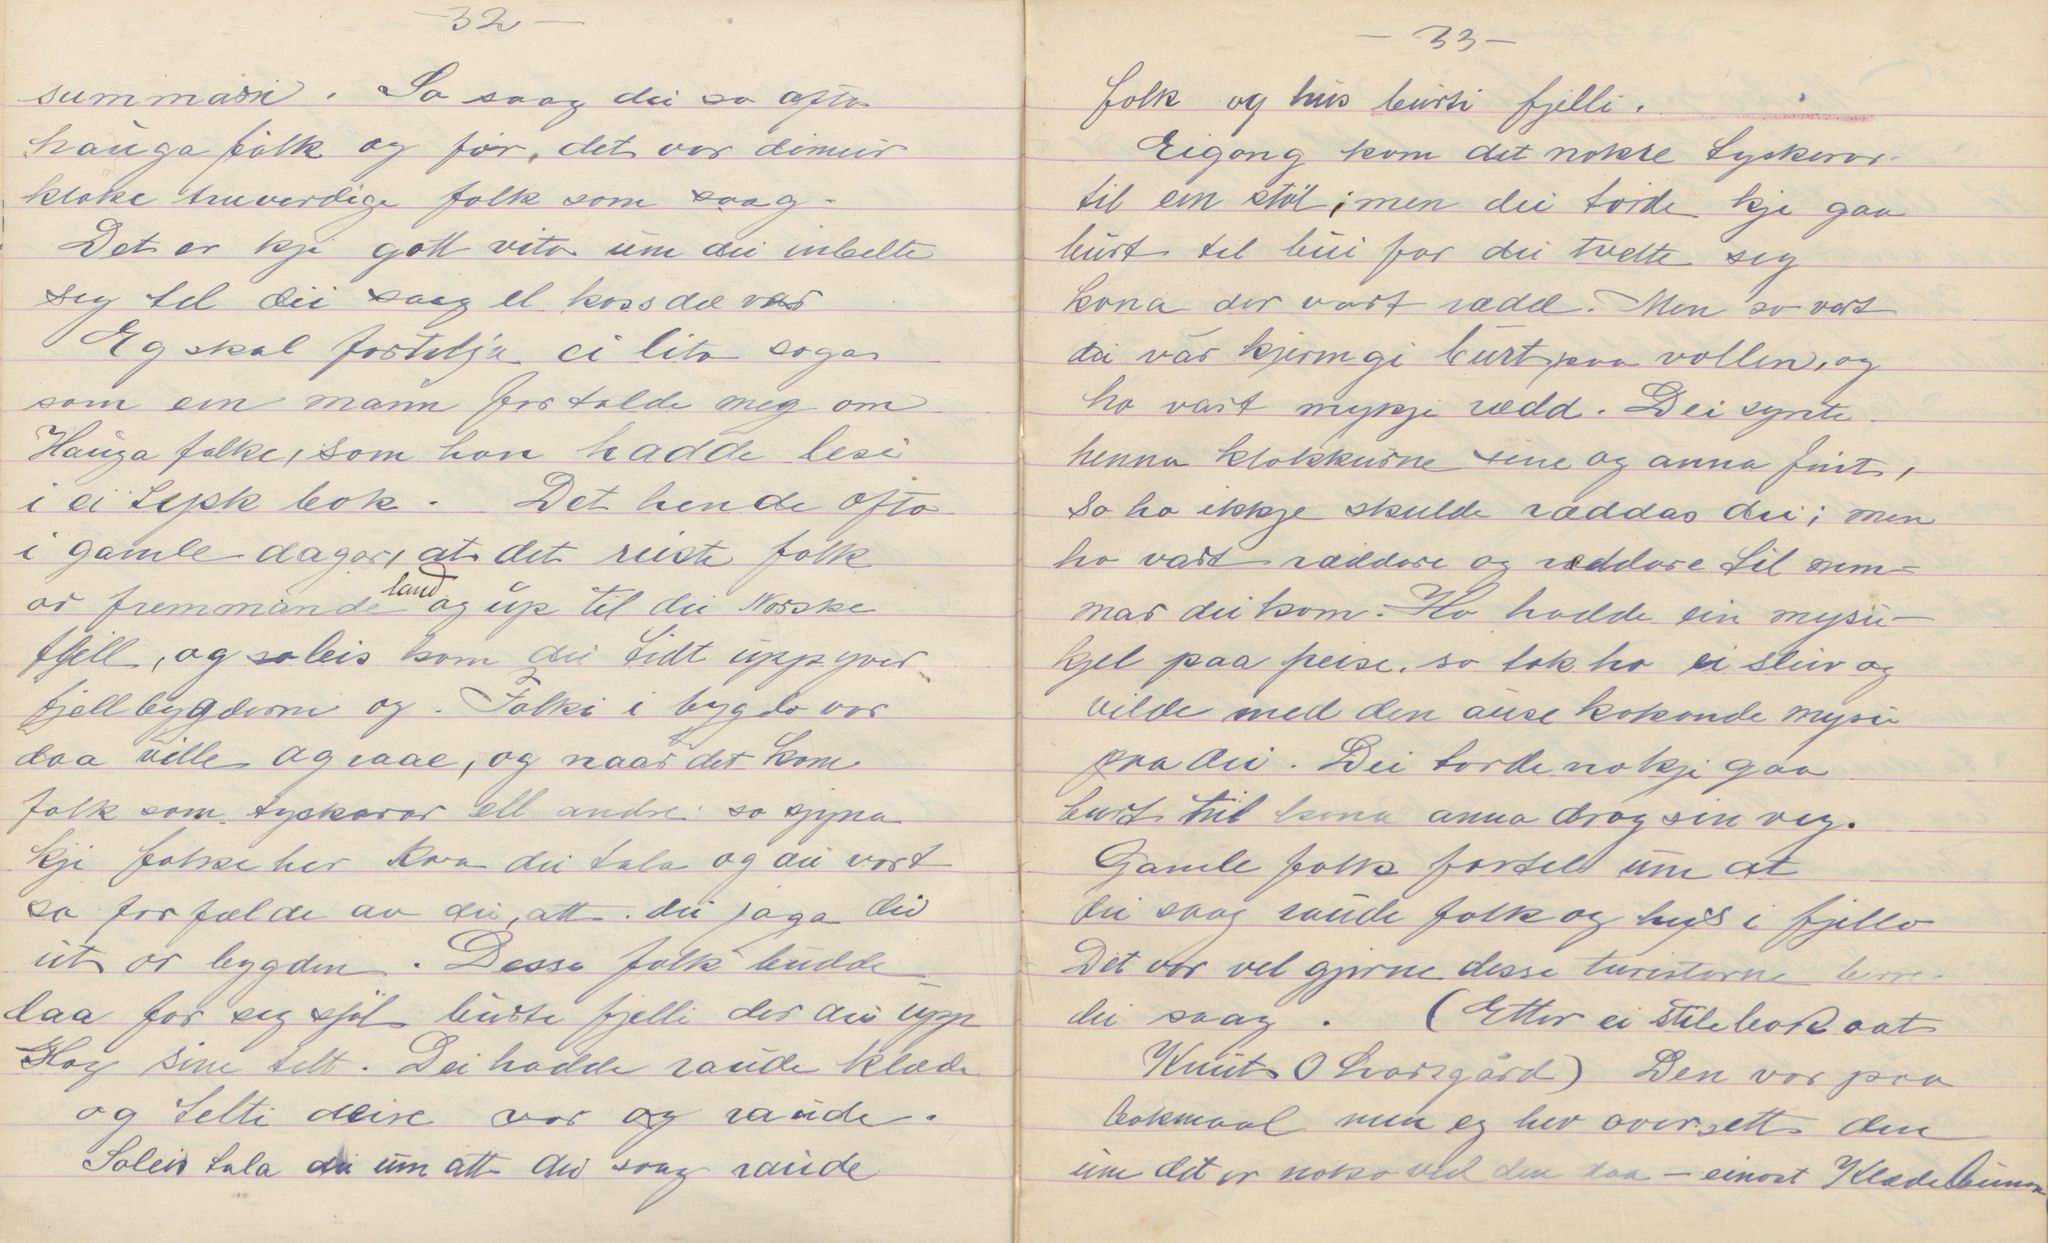 - 32 -
summarn. So saag dei so ofta
hauga folk og før, det var dimeir
kloke truverdige folk som saag.
Det er kji gott vita um dei inbelte
seg tel dei saag el koss dæ var
Eg skal fortelja ei lita soga
som ein mann fortalde meg om
Hauga folke, som han hadde lesi
i ei tysk bok. Det hende ofta
i gamle dagar, at det reiste folk
or fremmande land og up til dei Norske
fjell, og soleis kom dei tidt upp yver
fjellbygderne og. Folki i bygdo var
daa ville og raae, og naar det kom
folk som tyskarar ell andre: so sjyna
kji folke her kva dei tala og dei vart
so forfælde av dei, att dei jaga dei
ut or bygden. Desse folk budde
daa for seg sjøl burte fjelli der dei upp
slog sine telt. Dei hadde raude klæde
og telti deire var og raude.
Soleis tala dei um att dei saag raude
- 33 -
folk og hus burti fjelli.
Eigong kom det nokre tyskerar
til ein støl; men dei torde kje gaa
burt til bui for dei tvelte seg
kona der vart rædd. Men so vart
dei vár kjerngi burt paa vollen, og
ho vart mykje rædd. Dei synte
henna klokkurne sine og anna fint,
so ho ikkje skulde ræddas dei; men
ho vart ræddare og ræddare til nem-
mar dei kom. Ho hadde ein mysu-
kjel paa peise. so tok ho ei sleiv og
vilde med den ause kokande mysu
paa dei. Dei torde nokji gaa
burt til kona anna drog sin veg.
Gamle folk fortel um at
dei saag raude folk og hus i fjello
Det var vel gjerne desse turistarne berre
dei saag. (Etter ei stilebok aat
Knut O Svarsgård) Den var paa
bokmaal men eg hev oversett den
um det er noko ved den daa - einast Klædebunan